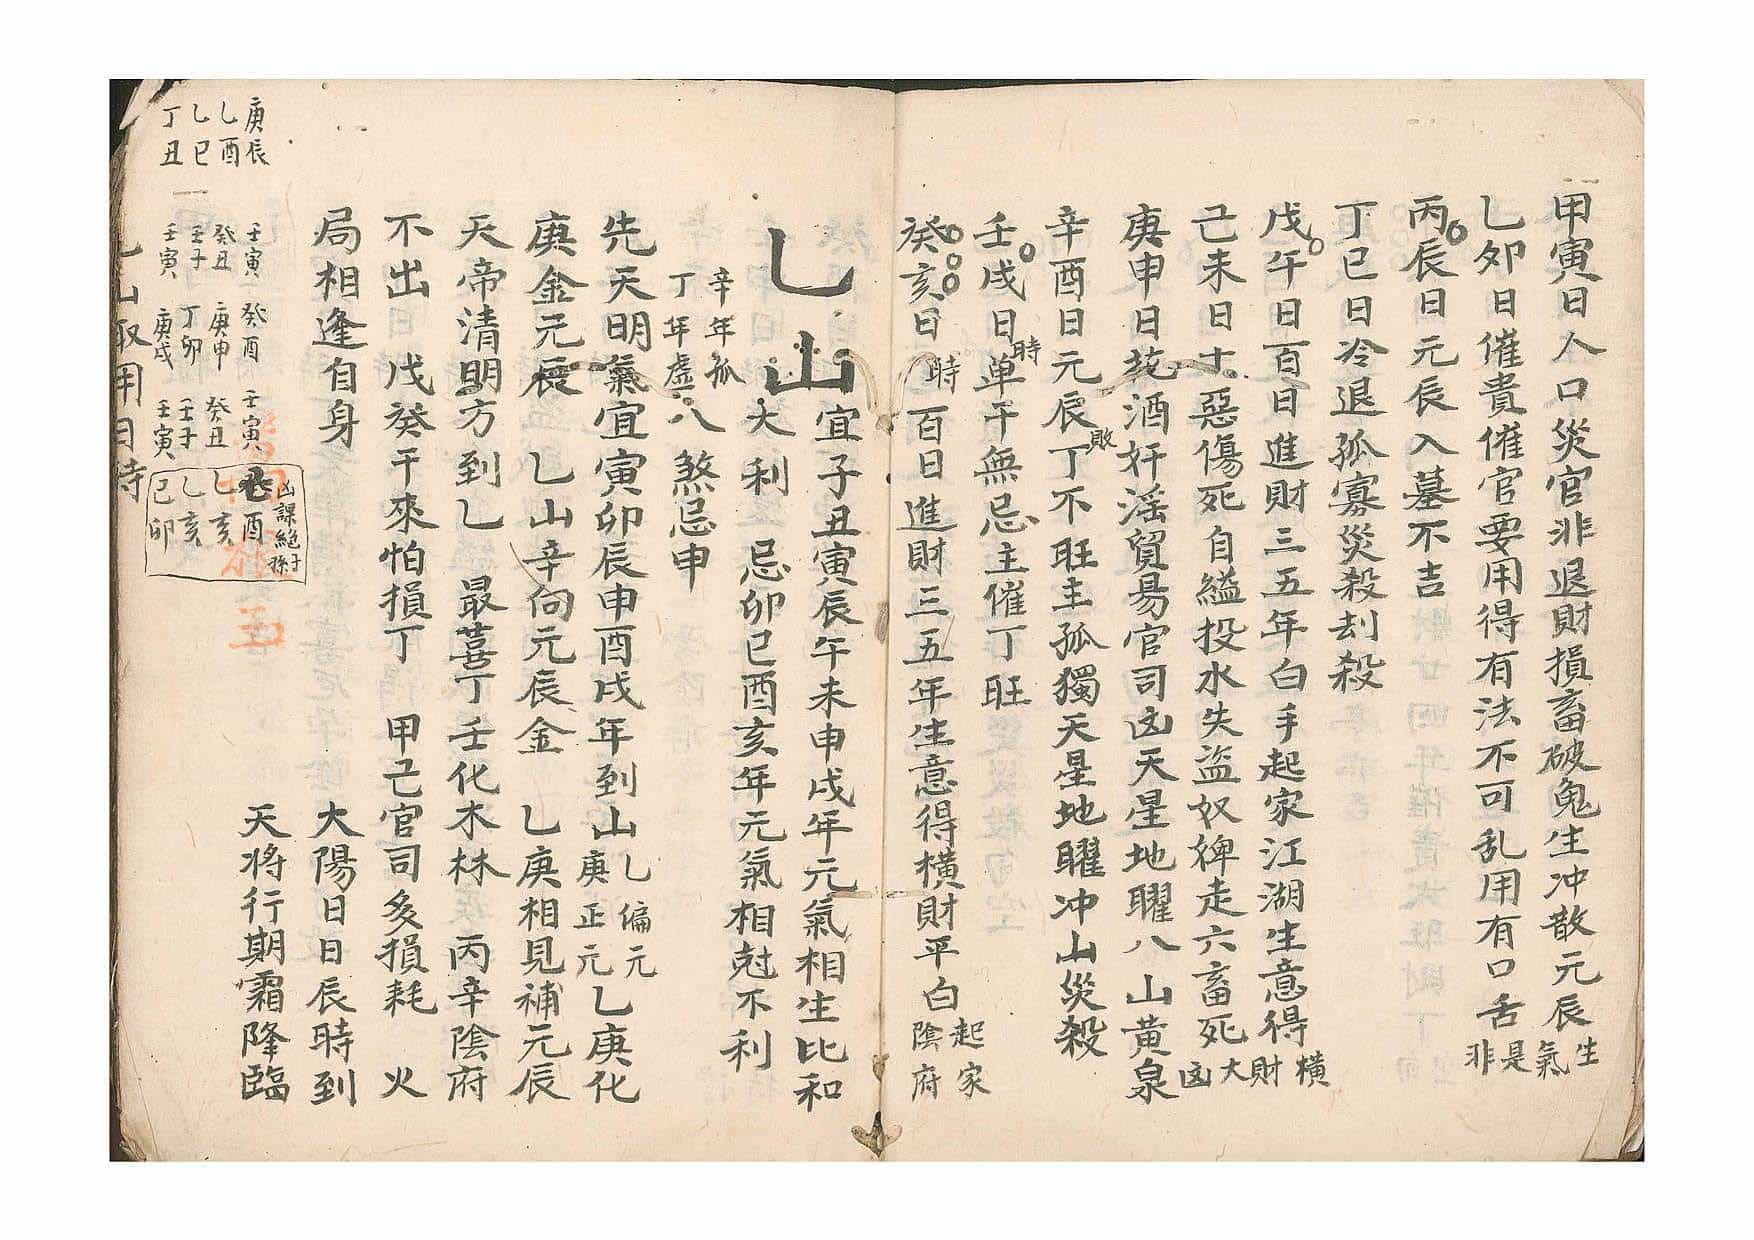 甲寅日人口災官非退財損畜破鬼生冲散元辰生氣
乙卯日催貴催官要用得有法不可乱用有口舌是非
丙辰日元辰入墓不吉
丁巳日冷退孤寡災殺刦殺
戊午日百日進財三五年白手起家江湖生意得橫財
己未日十惡傷死自縊投水失盜奴婢走六畜死大凶
庚申日花酒奸滛貿易官司凶天星地曜八山黄泉
辛酉日元辰敗丁不旺主孤獨天星地曜冲山災殺
壬戌日時單干無忌主催丁旺
癸亥日時百日進財三五年生意得橫財平白起家陰府
乙山
宜子丑寅辰午未申戌年元氣相生比和
大利 忌卯巳酉亥年元氣相尅不利
辛年孤
丁年虛
八煞忌申
先天明氣宜寅卯辰申酉戌年到山乙偏元庚正元乙庚化
庚金元辰 乙山辛向元辰金 乙庚相見補元辰
天帝清明方到乙 最喜丁壬化木林 丙辛陰府
不出日 戊癸干來怕損丁 甲己官司多損耗 火
局相逢自身 大陽日日辰時到
天將行期霜降臨
庚辰
乙酉
乙巳
丁丑
壬寅 癸酉 壬寅
癸丑 庚申 癸丑
壬子 丁卯 壬子
壬寅 庚戌 壬寅
凶課絕孫
酉
乙亥
乙亥
己卯
乙山取用日時